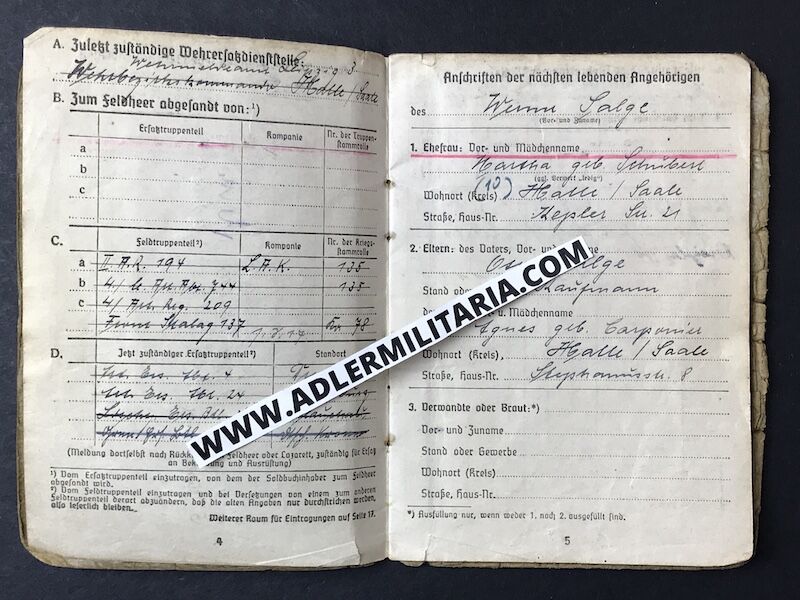 A. Zuletzt zuständige Wehrersatzdienststelle:
Wehrbezirkskommando Halle / Saale
B. Zum Feldheer abgesandt von:¹)
Ersatztruppenteil Kompanie Nr. der Truppen-
stammrolle
a
b
c
C. Feldtruppenteil²) Kompanie Nr. der Kriegs-
stammrolle
a II A.R. 194 L.A.K. 135
b 744 135
c 4/ Art. Reg. 209
Front Stalag 137 78
D. Jetzt zuständiger Ersatztruppenteil²) Standort
Art. Ers. Abt. 4
Art. Ers. Abt. 24
(Meldung dortselbst nach Rückk Feldheer oder Lazarett, zuständig für Ersatz
an Bekl ung und Ausrüstung)
¹) Vom Ersatztruppenteil einzutragen, von dem der Soldbuchinhaber zum Feldheer
abgesandt wird.
²) Vom Feldtruppenteil einzutragen und bei Versetzungen von einem zum anderen
Feldtruppenteil derart abzuändern, daß die alten Angaben nur durchstrichen werden,
also leserlich bleiben.
Weiterer Raum für Eintragungen auf Seite 17.
4
Anschriften der nächsten lebenden Angehörigen
des Werner Salge
(Vor- und Zuname)
1. Ehefrau: Vor- und Mädchenname
Martha geb Schubert
(ggf. Vermerk „ledig“)
Wohnort (Kreis) (10) Halle / Saale
Straße, Haus-Nr. Kepler Str. 21
2. Eltern: des Vaters, Vor- und name
Salge
Stand oder Kaufmann
de u. Mädchenname
Agnes geb. Carponier
Wohnort (Kreis) Halle / Saale
Straße, Haus-Nr. Stephanusstr. 8
3. Verwandte oder Braut:*)
Vor- und Zuname
Stand oder Gewerbe
Wohnort (Kreis)
Straße, Haus-Nr.
*) Ausfüllung nur, wenn weder 1. noch 2. ausgefüllt sind.
5
WWW.ADLERMILITARIA.COM